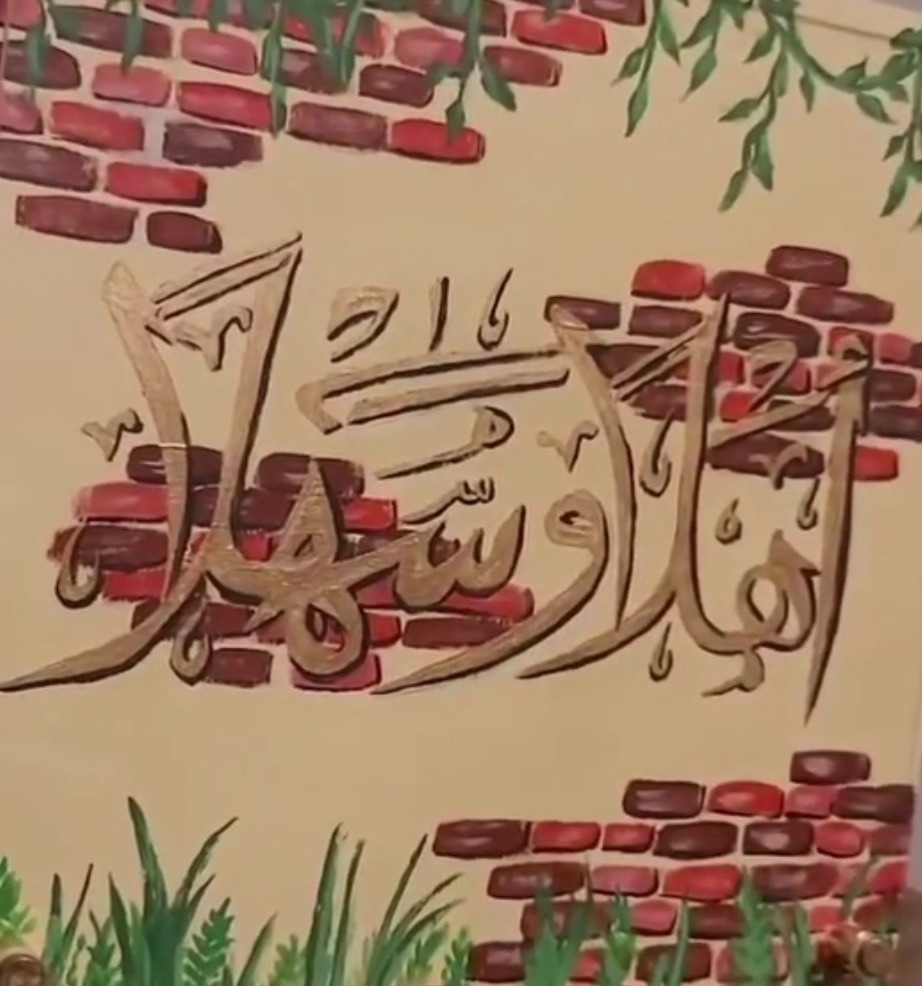 أهلا وسهلا